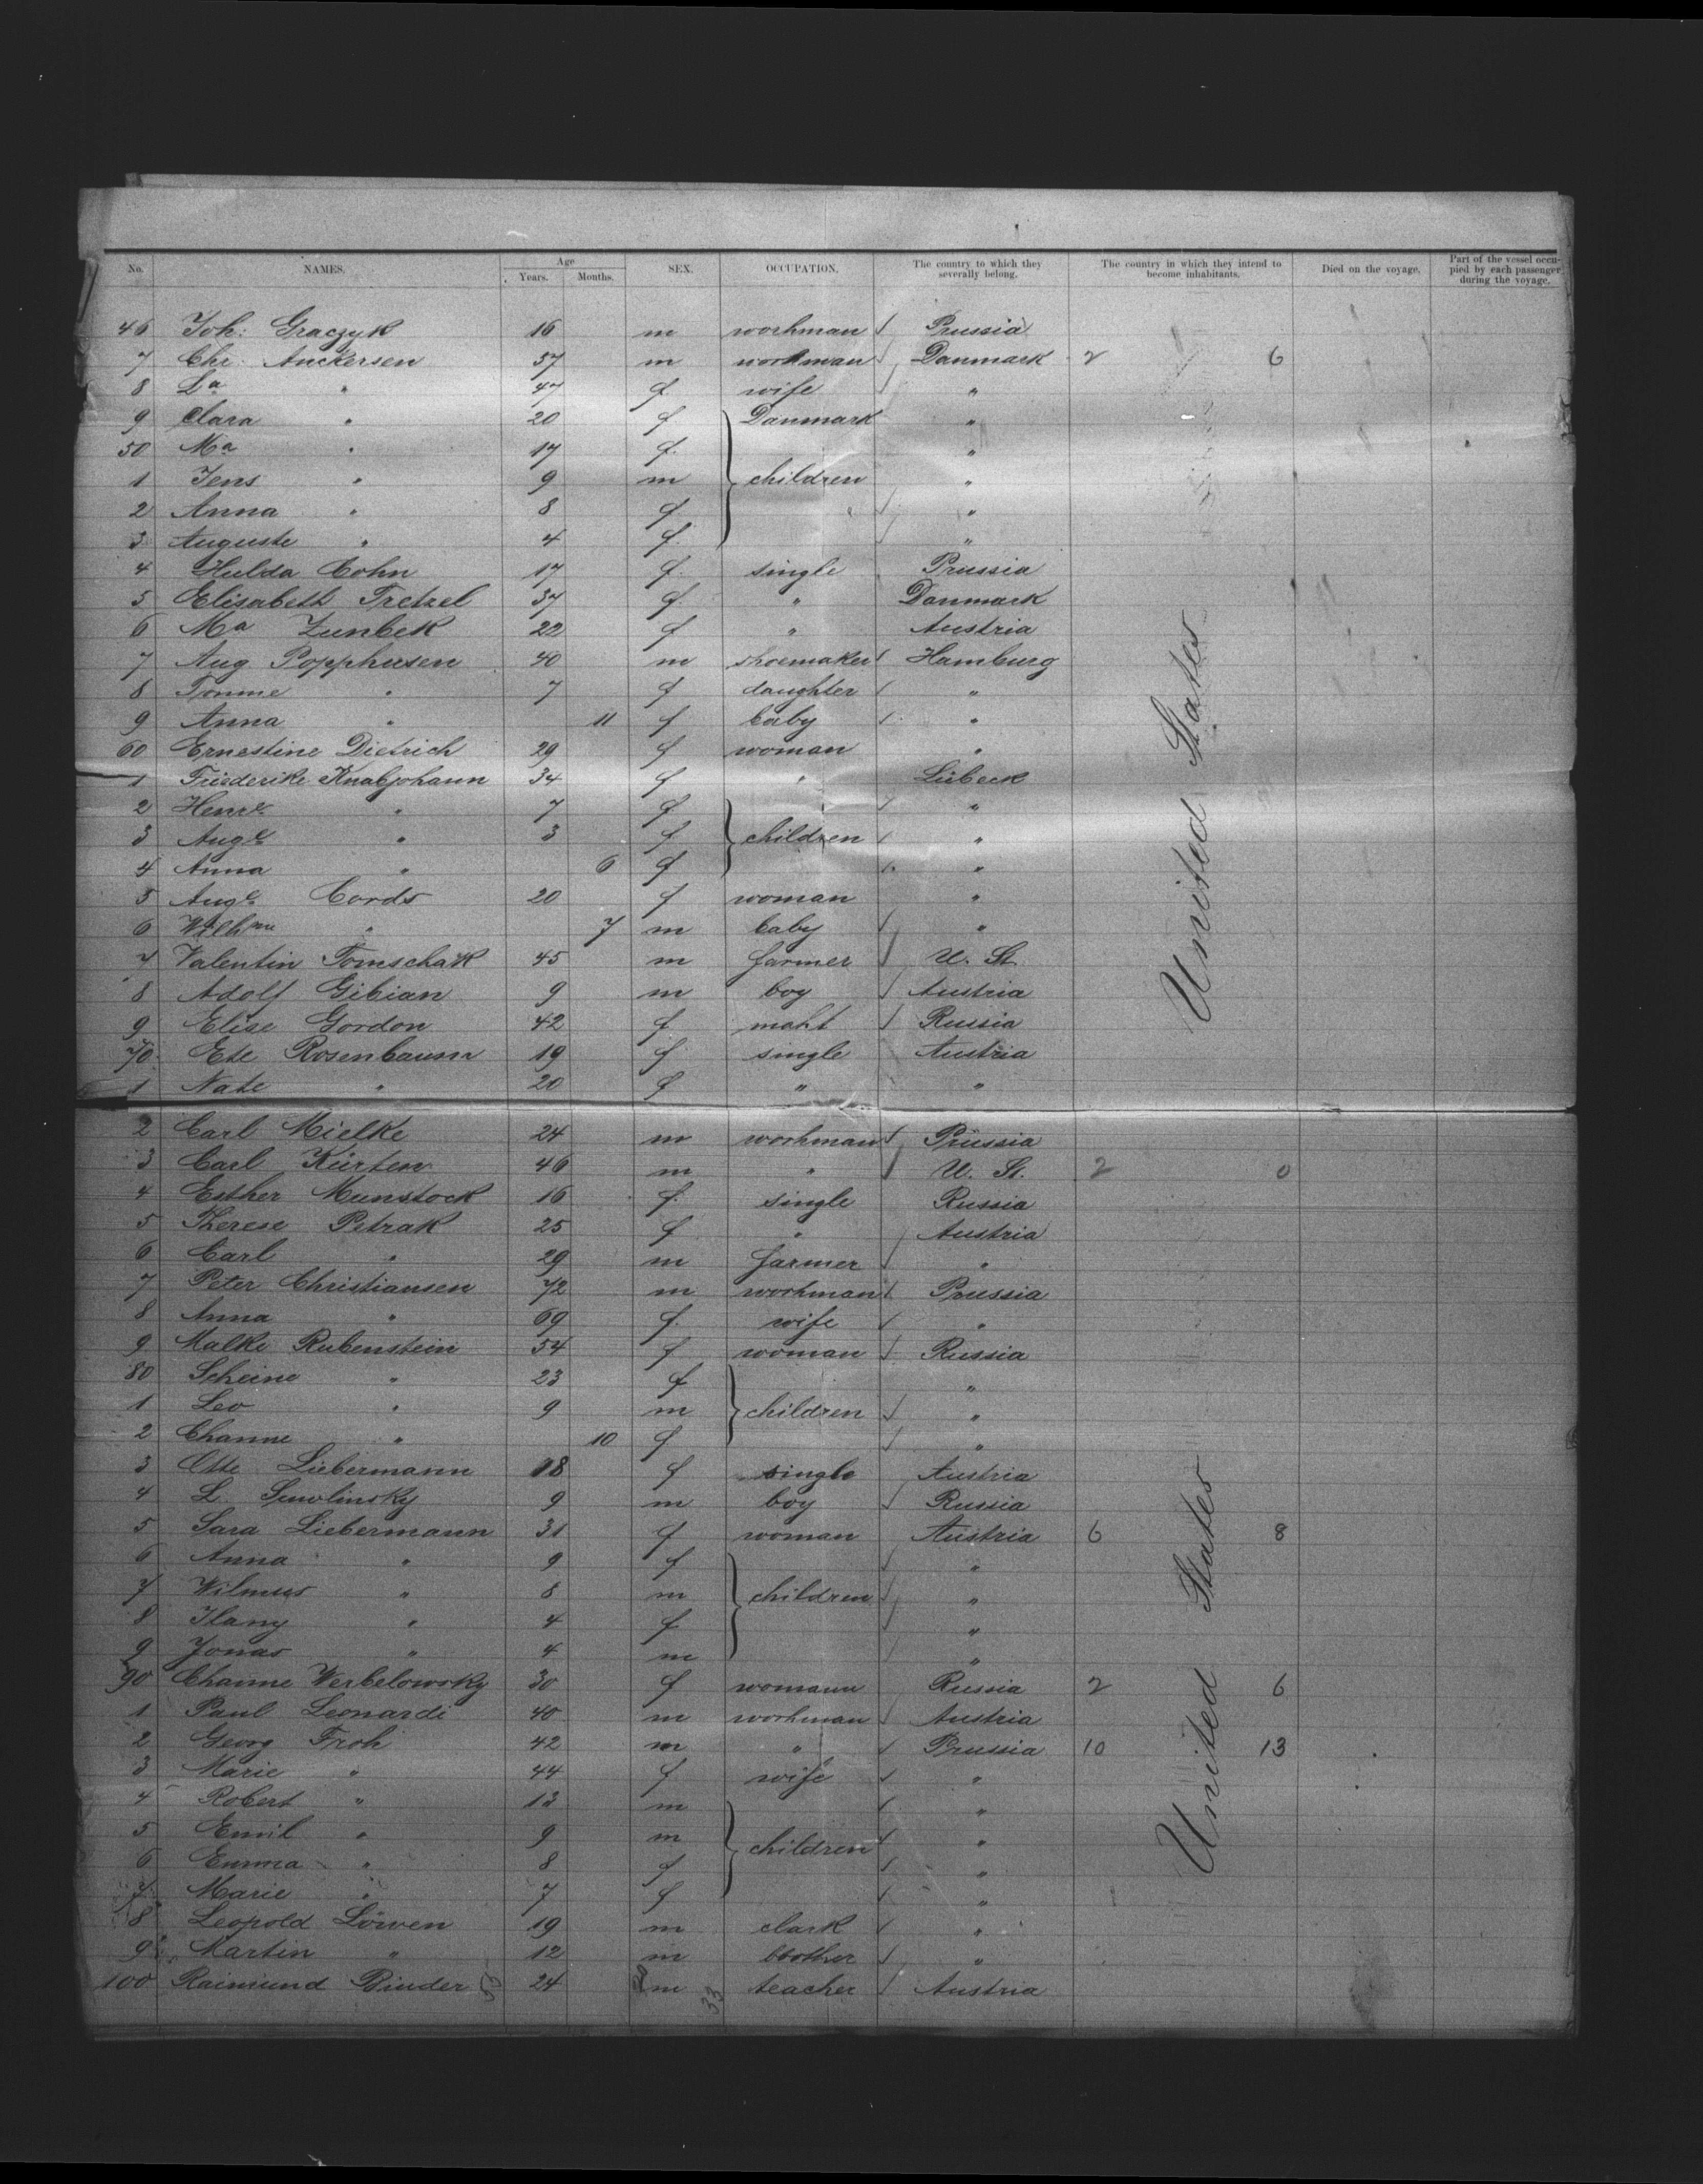 No. NAMES. Age Years. Months. SEX. OCCUPATION. The country to which they severally belong. The country in which they intend to become inhabitants. Died on the voyage. Part of the vessel occupied by each passenger during the voyage.
46 Joh: Graczyk 16 m workman Prussia
7 Chr. Anckersen 57 m workman Danmark 2 6
8 La " 47 f. wife "
9 Clara " 20 f Danmark "
50 Ma " 17 f. "
1 Jens " 9 m children "
2 Anna " 8 f "
3 Auguste " 4 f. "
4 Hulda Cohn 17 f. single Prussia
5 Elisabeth Tretzel 37 f. " Danmark
6 Ma Zunbek 22 f " Austria
7 Aug Popphusen 40 m shoemaker Hamburg
8 Tonme " 7 f daughter "
9 Anna " 11 f baby "
60 Ernestine Dietrich 29 f woman "
1 Friederike Knabjohann 34 f " Lübeck
2 Henre " 7 f "
3 Auge " 3 f children "
4 Anna " 6 f "
5 Auge Cords 20 f woman "
6 Wilhm " 7 m baby "
7 Valentin Tomschak 45 m farmer U. St.
8 Adolf Gibian 9 m boy Austria
9 Elise Gordon 42 f maht Russia
70 Ete Rosenbaum 19 f single Austria
1 Nate " 20 f " "
2 Carl Mielke 24 m workman Prussia
3 Carl Kürten 46 m " U. St. 2 0
4 Esther Munstock 16 f. single Russia
5 Therese Petrak 25 f " Austria
6 Carl " 29 m farmer "
7 Peter Christiansen 72 m workman Prussia
8 Anna " 69 f. wife "
9 Malke Rubenstein 54 f woman Russia
80 Scheine " 23 f "
1 Leo " 9 m children "
2 Channe " 10 f "
3 Otte Liebermann 18 f single Austria
4 L. Suwlinsky 9 m boy Russia
5 Sara Liebermann 31 f woman Austria 6 8
6 Anna " 9 f "
7 Wilmus " 8 m children "
8 Ilany " 4 f "
9 Jonas " 4 m "
90 Channe Werbelowsky 30 f womann Russia 2 6
1 Paul Leonardi 40 m workman Austria
2 Georg Froh 42 m " Prussia 10 13
3 Marie " 44 f wife "
4 Robert " 13 m "
5 Emil " 9 m children "
6 Emma " 8 f "
7 Marie " 7 f "
8 Leopold Löwen 19 m clark "
9 Martin " 12 m brother "
100 Raimund Binder 24 m 33 teacher Austria
United States
United States